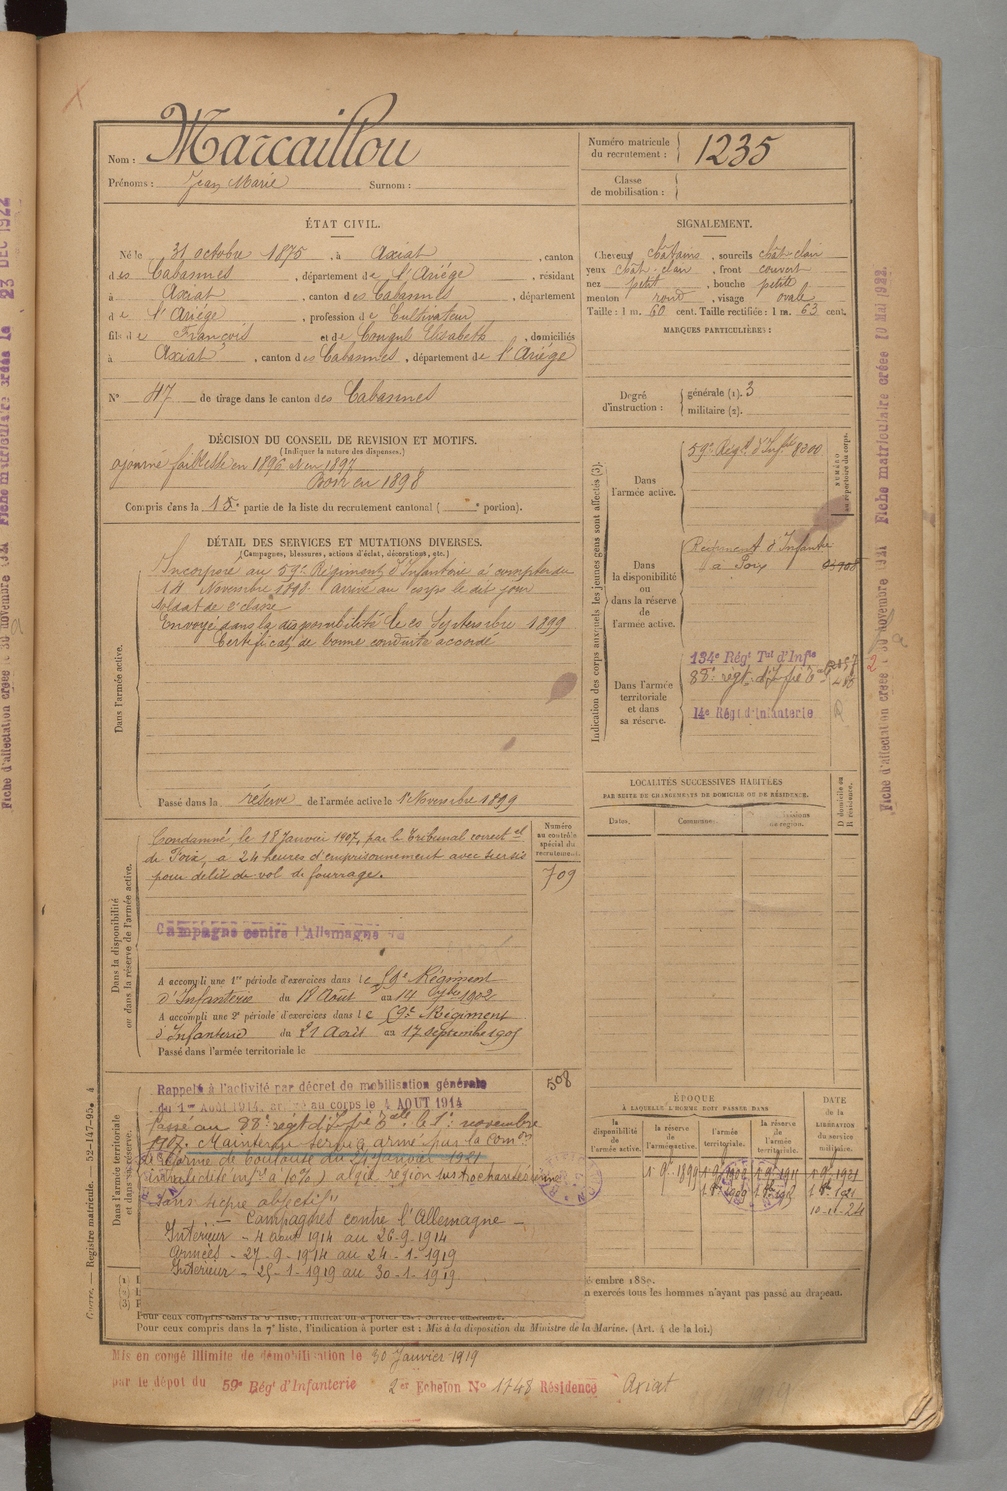 Nom : Marcaillou
Prénoms : Jean Marie Surnom :
Numéro matricule
du recrutement : 1235
Classe
de mobilisation :
ÉTAT CIVIL.
Né le 31 octobre 1875, à Axiat, canton
des Cabannes, département de l'Ariége, résidant
à Axiat, canton des Cabannes, département
de l'Ariége, profession de Cultivateur
fils de François et de Couguls Elisabeth, domiciliés
à Axiat, canton des Cabannes, département de l'Ariége
N° 47 de tirage dans le canton des Cabannes
SIGNALEMENT.
Cheveux châtains, sourcils chât-clair
yeux chât-clair, front couvert
nez petit, bouche petite
menton rond, visage ovale
Taille : 1 m. 60 cent. Taille rectifiée : 1 m. 63 cent.
MARQUES PARTICULIÈRES :
Degré
d'instruction :
générale (1). 3
militaire (2).
DÉCISION DU CONSEIL DE REVISION ET MOTIFS.
(Indiquer la nature des dispenses.)
ajourné faiblesse en 1896 et en 1897
Bon en 1898
Compris dans la 1e partie de la liste du recrutement cantonal ( portion).
DÉTAIL DES SERVICES ET MUTATIONS DIVERSES.
(Campagnes, blessures, actions d'éclat, décorations, etc.)
Dans l'armée active.
Incorporé au 59e Régiment d'Infanterie à compter du
14 Novembre 1898. Arrivé au corps le dit jour
Soldat de 2e classe
Envoyé dans la disponibilité le 20 Septembre 1899
Certificat de bonne conduite accordé
Passé dans la réserve de l'armée active le 1er Novembre 1899
Indication des corps auxquels les jeunes gens sont affectés (3).
NUMÉRO
au répertoire du corps.
Dans
l'armée active.
59e Régt d'Inftie 8300
Dans
la disponibilité
ou
dans la réserve
de
l'armée active.
Régiment d'Infanterie
à Foix
Dans l'armée
territoriale
et dans
sa réserve.
134e Régt Tal d'Infie
14e Régt d'Infanterie
LOCALITÉS SUCCESSIVES HABITÉES
PAR SUITE DE CHANGEMENTS DE DOMICILE OU DE RÉSIDENCE.
Dates. Communes. Subdivisions
de région. D domicile ou
R résidence.
Dans la disponibilité
ou dans la réserve de l'armée active.
Numéro
au contrôle
spécial du
recrutement.
709
Condamné, le 18 Janvier 1907, par le Tribunal correctel
de Foix, à 24 heures d'emprisonnement avec sursis
pour délit de vol de fourrage.
Campagne contre l'Allemagne
A accompli une 1re période d'exercices dans le 59e Régiment
d'Infanterie du 18 Août au 14 7bre 1902
A accompli une 2e période d'exercices dans le 59e Régiment
d'Infanterie du 21 Août au 17 septembre 1905
Passé dans l'armée territoriale le
Dans l'armée territoriale
et dans sa réserve.
508
Rappelé à l'activité par décret de mobilisation générale
du 1er Août 1914, arrivé au corps le 4 AOUT 1914
Passé au 88e régt d'Infie le 1er novembre
1917. Maintenu service armé par la Comon
de réforme de Toulouse du 21 janvier 1921
(invalidité inf. à 10%) algie région
sans signe objectif
- Campagnes contre l'Allemagne -
Intérieur - 4 août 1914 au 26-9-1914
Armées - 27-9-1914 au 24-1-1919
Intérieur - 25-1-1919 au 30-1-1919.
ÉPOQUE
À LAQUELLE L'HOMME DOIT PASSER DANS
la
disponibilité
de
l'armée active.
la réserve
de
l'armée active.
l'armée
territoriale.
la réserve
de
l'armée
territoriale.
DATE
de la
LIBÉRATION
du service
militaire.
10-11-24
n exercés tous les hommes n'ayant pas passé au drapeau.
Pour ceux compris dans la 7e liste, l'indication à porter est : Mis à la disposition du Ministre de la Marine. (Art. 4 de la loi.)
Mis en congé illimité de démobilisation le 30 Janvier 1919
par le dépôt du 59e Régt d'Infanterie 2er Echelon N° 1748 Résidence Axiat
Registre matricule. — 52-147-95.
Fiche matriculaire créée 10 Mai 1922.
23 DEC 1922